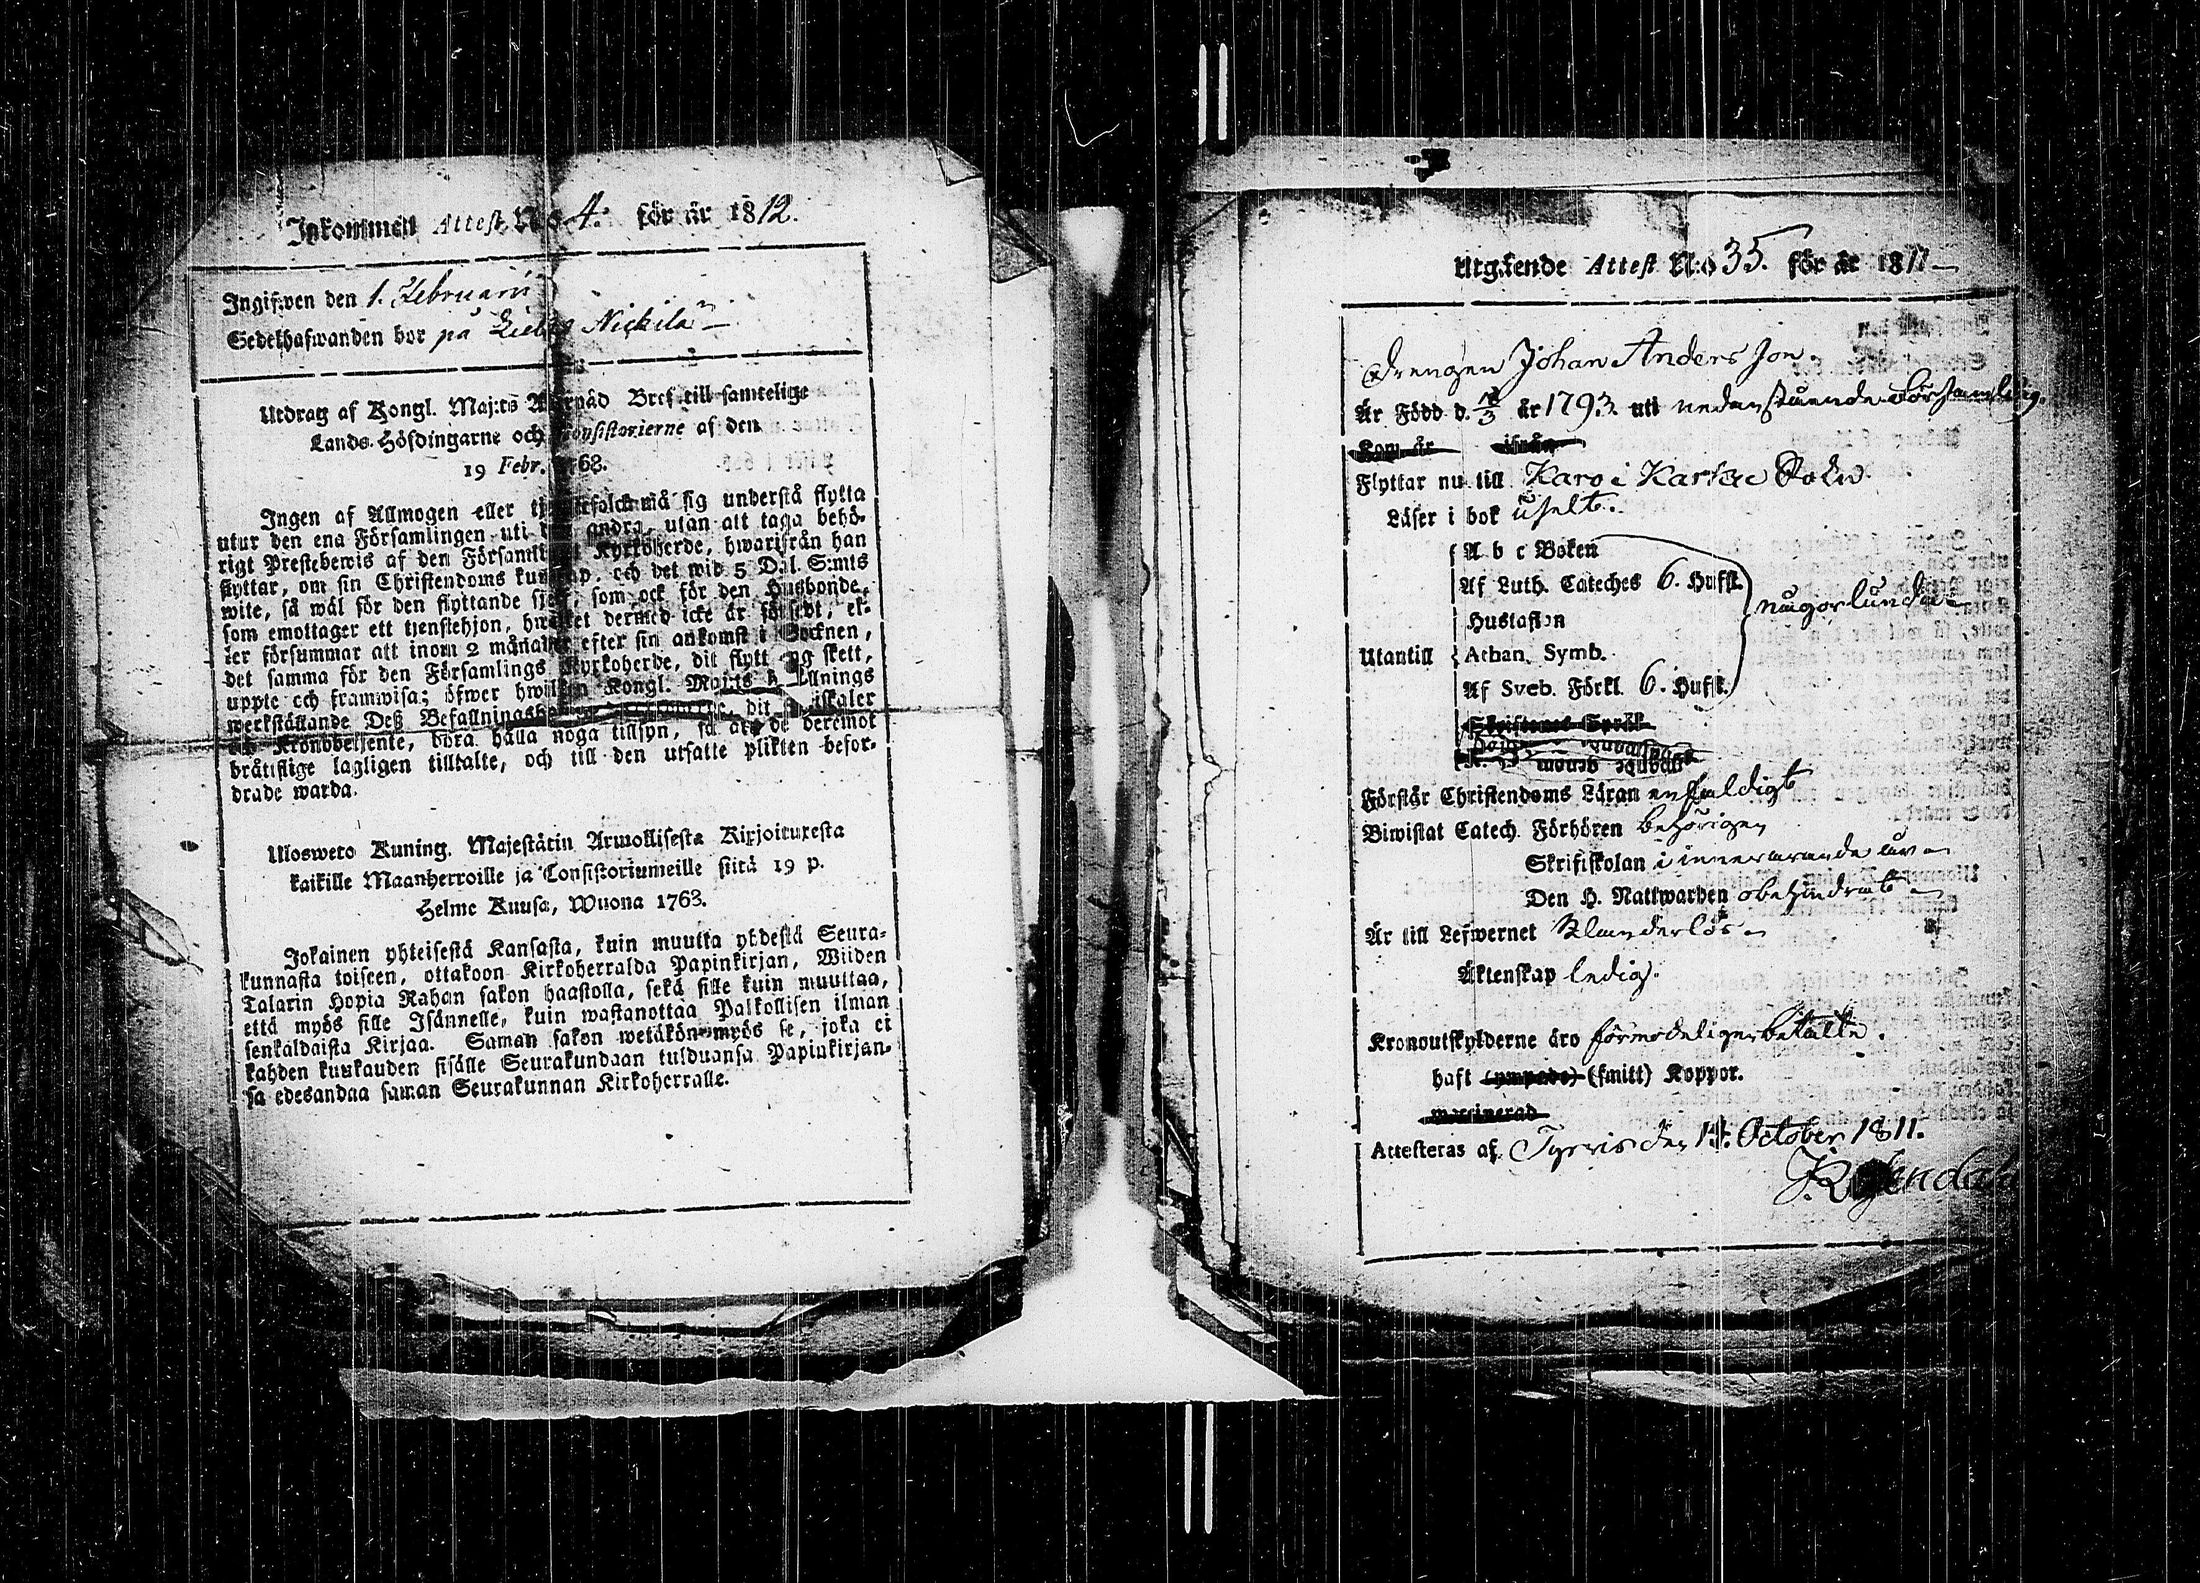 Inkommen Attest N:o 4. för år 1812.
Ingifwen den 1. Februarii
Sedelhafwanden bor på Nickilä
Utdrag af Kongl. Maj:ts Bref till samtelige
Lands-Höfdingarne och Consistorierne af den
19 Febr.
Ingen af Allmogen eller må sig understå flytta
utur den ena Församlingen uti andra, utan att taga behö-
rigt Prestebewis af den Kyrkoherde, hwarifrån han
flyttar, om sin Christendoms och det wid 5 Dal. S:mts
wite, så wäl för den flyttande som ock för den Husbonde,
som emottager ett tjenstehjon, dermed icke är försedt, el-
ler försummar att inom 2 månader efter sin ankomst i Socknen,
det samma för den Församlings Kyrkoherde, dit flyttning skett,
uppte och framwisa; öfwer hwilken Kongl. Maj:ts
werkställande Deß dit
Kronobetjente, böra hålla noga tillsyn, så att de deremot
bråttslige lagligen tilltalte, och till den utsatte plikten befor-
drade warda.
Ulosweto Kuning. Majestätin Armollisesta Kirjoituxesta
kaikille Maanherroille ja Consistoriumeille siitä 19 p.
Helme Kuusa, Wuona 1763.
Jokainen yhteisestä Kansasta, kuin muutta yhdestä Seura-
kunnasta toiseen, ottakoon Kirkoherralda Papinkirjan, Wiiden
Talarin Hopia Rahan sakon haastolla, sekä sille kuin muuttaa,
että myös sille Isännelle, kuin wastanottaa Palkollisen ilman
senkaldaista Kirjaa. Saman sakon wetäkön myös se, joka ei
kahden kuukauden sisälle Seurakundaan tulduansa Papinkirjan-
sa edesandaa saman Seurakunnan Kirkoherralle.
Utgående Attest N:o 35. för år 1811
Drengen Johan Anders Son.
Är Född d. år 1793. uti nedanstående Församling.
Kom år ifrån
Flyttar nu till Karo i Karkku Sokn
Läser i bok uselt.
A b c Boken
Af Luth. Cateches 6. Hufst.
någorlunda
Hustaflan
Utantill Athan. Symb.
Af Sveb. Förkl. 6. Hufst.
Skriftenes Språk
Förstår Christendoms Läran enfaldigt
Biwistat Catech. Förhören behörigen
Skriftskolan i innewarande år
Den H. Nattwarden obehindrat
Är till Lefwernet Klanderlös
Äktenskap ledig.
Kronoutskylderne äro förmodeligen betalte.
haft (ympade) (smitt) Koppor.
vaccinerad
Attesteras af Tyrvis den 14. October 1811.